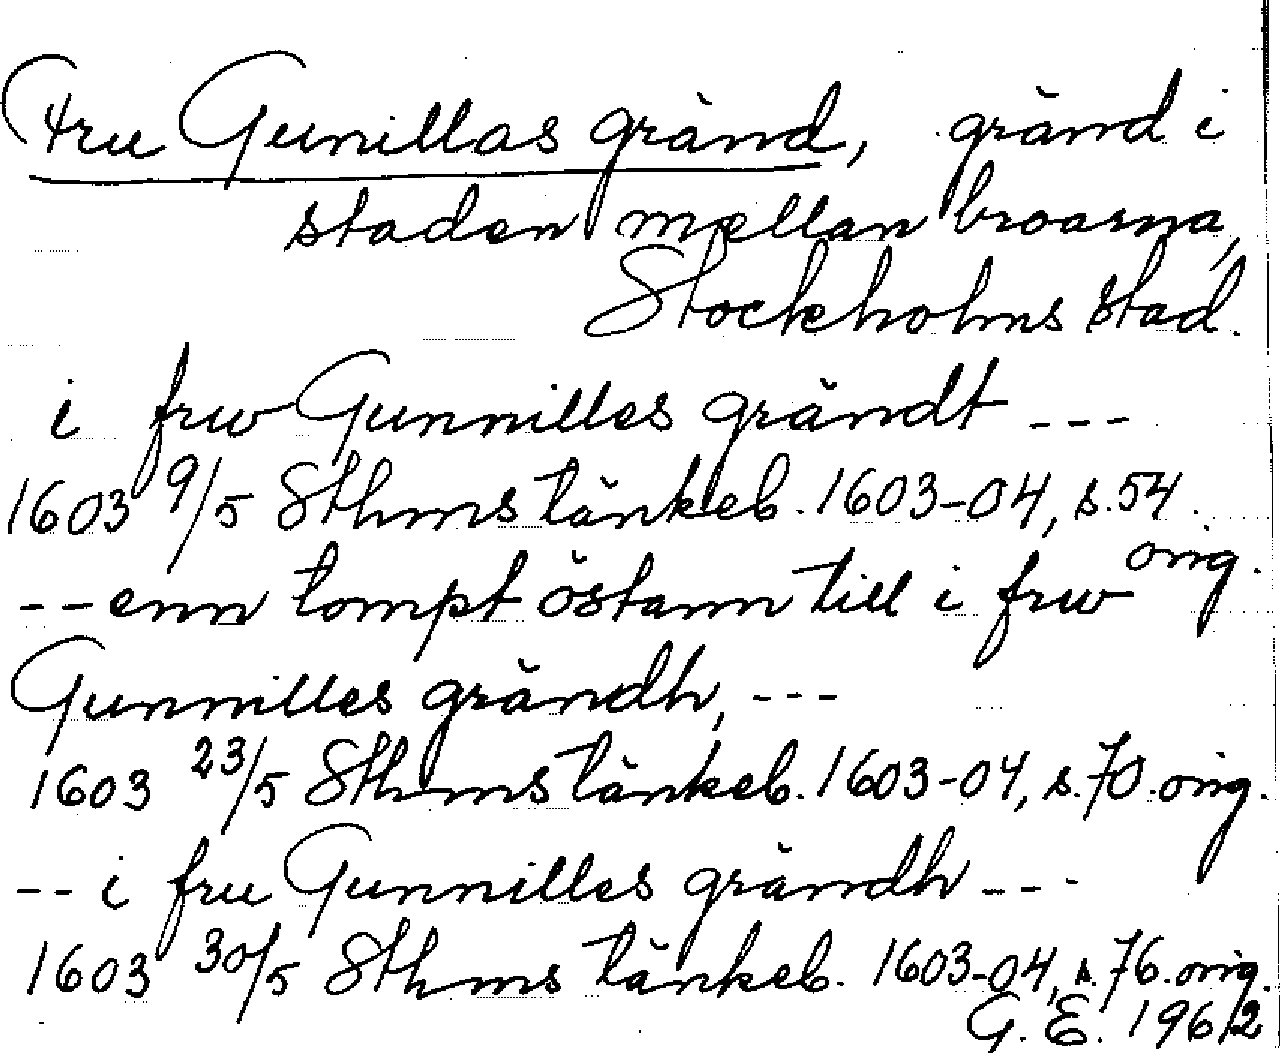 Fru Gunillas gränd, gränd i
staden mellan broarna,
Stockholms stad.
i frw Gunnilles grändt ---
1603 9/5 Sthms tänkeb. 1603-04, s. 54.
orig.
-- enn tompt östann till i frw
Gunnilles grändh, ---
1603 23/5 Sthms tänkeb. 1603-04, s. 70. orig.
-- i fru Gunnilles grändh ---
1603 30/5 Sthms tänkeb. 1603-04, s. 76. orig.
G. E. 1962